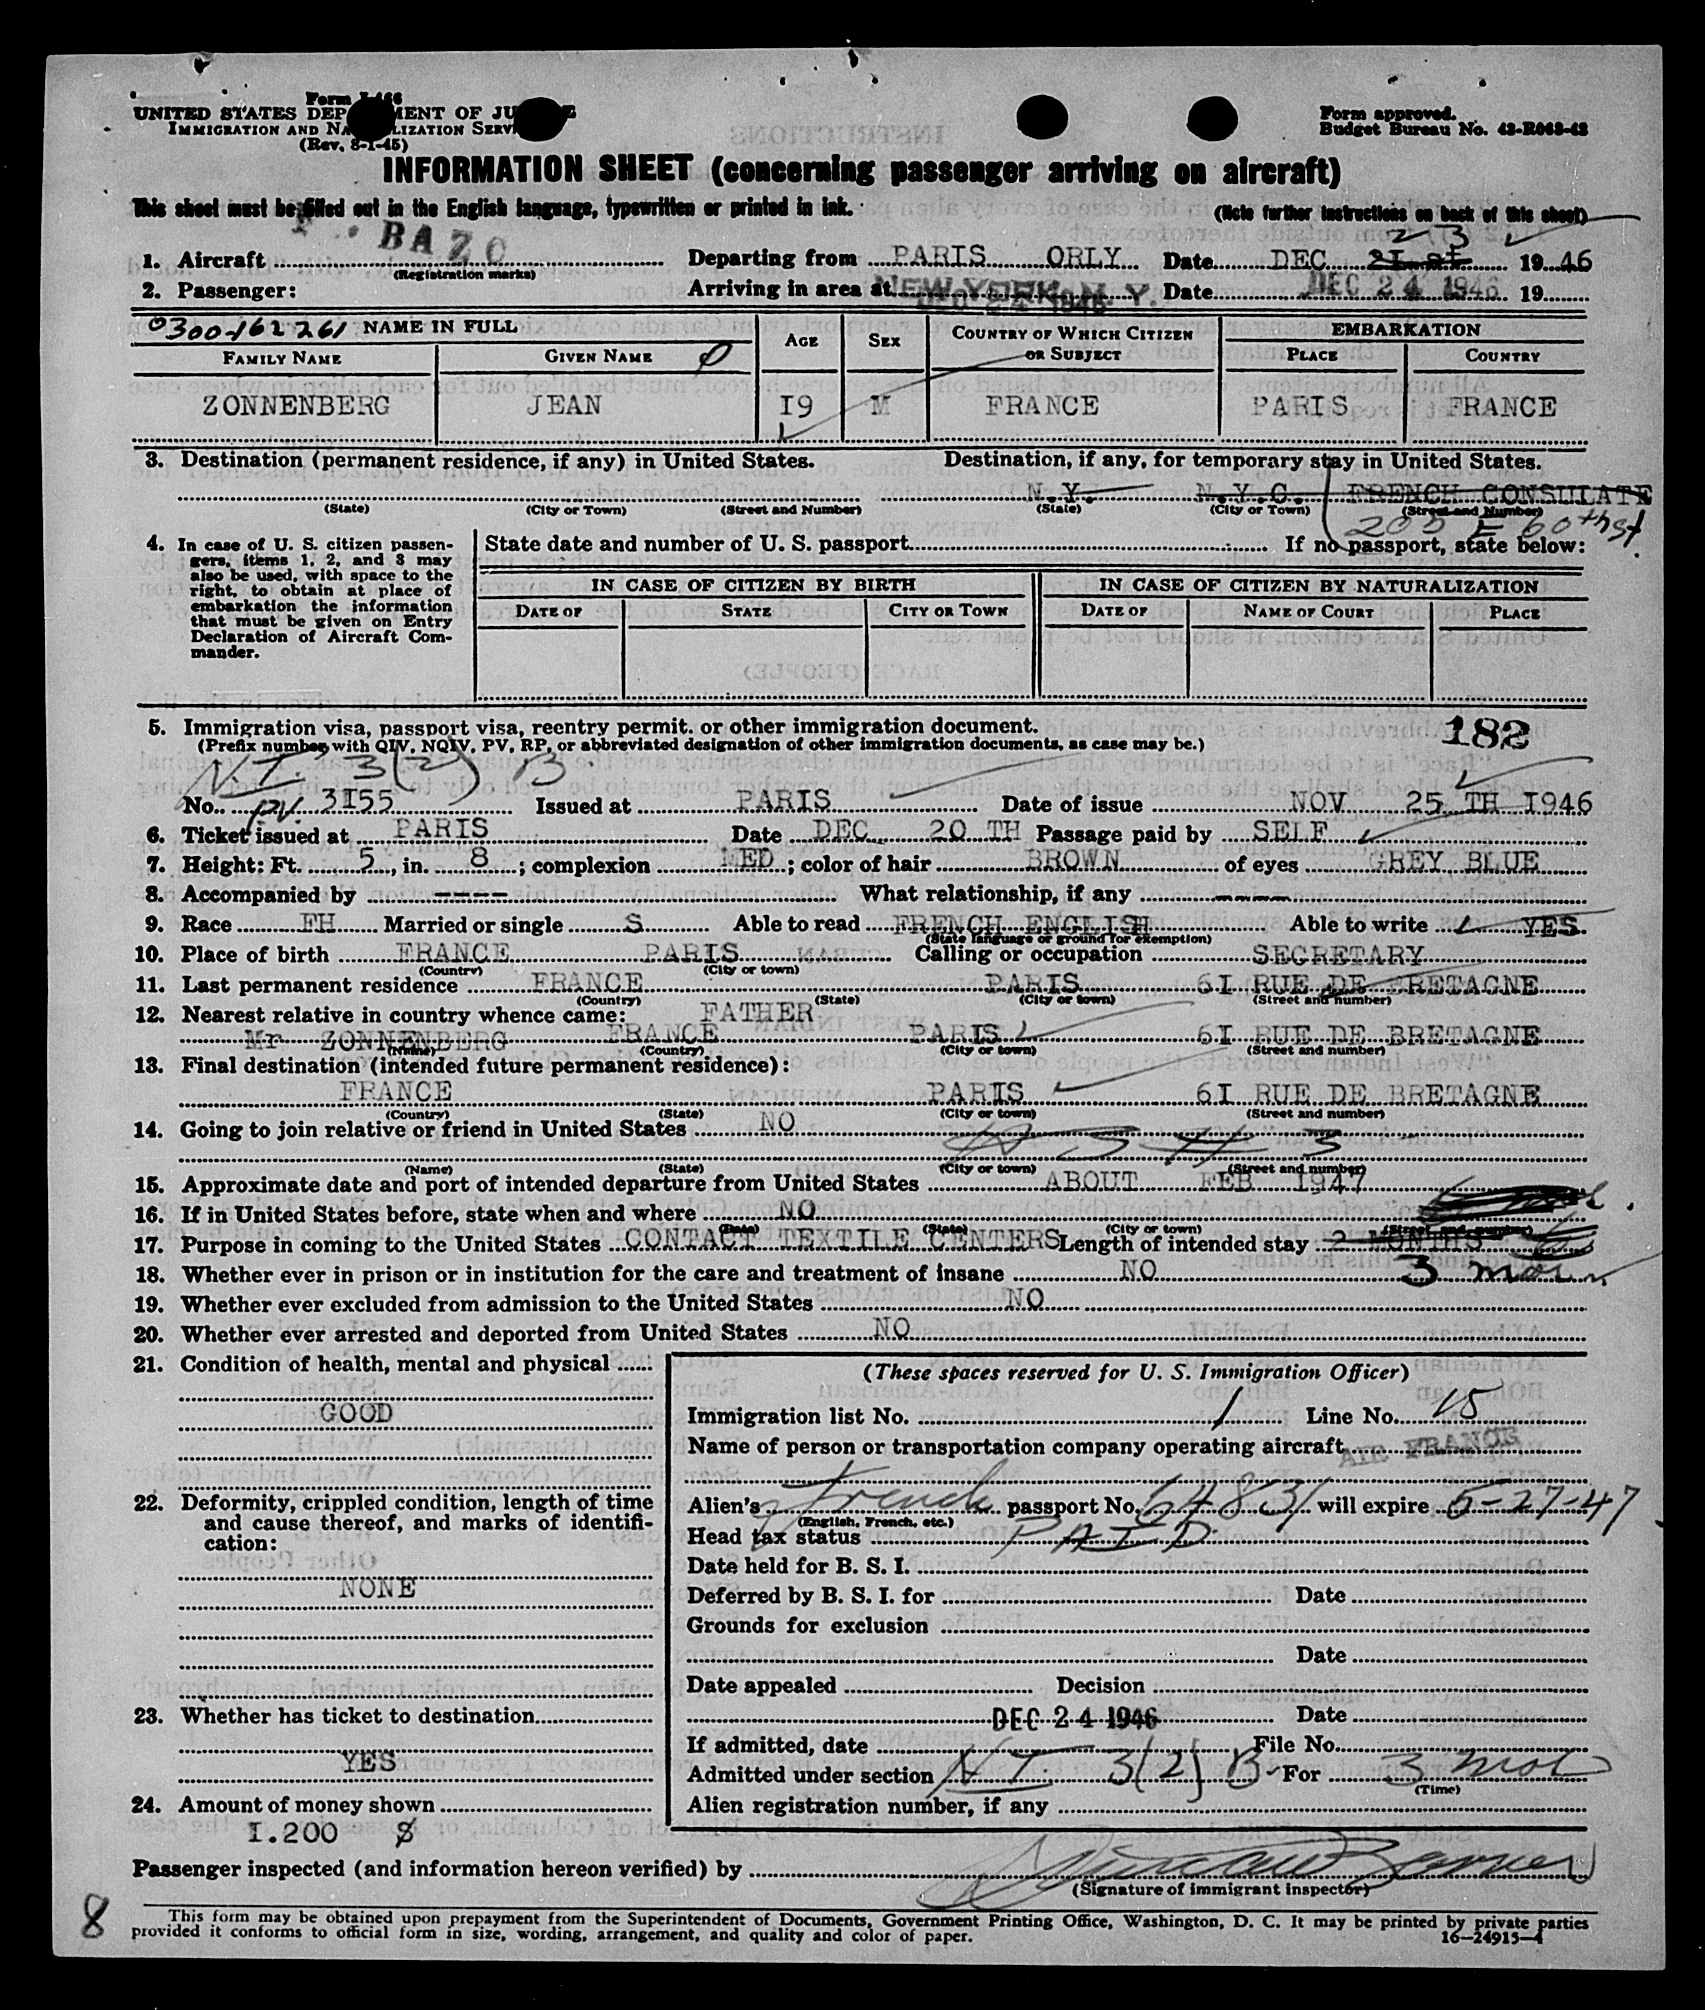 Form I-466
UNITED STATES DEPARTMENT OF JUSTICE
IMMIGRATION AND NATURALIZATION SERVICE
(Rev. 8-1-45)
Form approved.
Budget Bureau No. 43-R063-43
INFORMATION SHEET (concerning passenger arriving on aircraft)
This sheet must be filled out in the English language, typewritten or printed in ink.
(Note further instructions on back of this sheet)
F. BAZC
23
1. Aircraft (Registration marks) Departing from PARIS ORLY Date DEC 21 st 1946
2. Passenger: Arriving in area at NEW YORK, N. Y. Date DEC 24 1946 19
0300-162261 NAME IN FULL AGE SEX COUNTRY OF WHICH CITIZEN OR SUBJECT EMBARKATION
FAMILY NAME GIVEN NAME PLACE COUNTRY
ZONNENBERG JEAN I9 M FRANCE PARIS FRANCE
3. Destination (permanent residence, if any) in United States. Destination, if any, for temporary stay in United States.
N.Y. N.Y.C. FRENCH CONSULATE
(State) (City or Town) (Street and Number) (State) (City or Town) (Street and Number)
205 E 60th st.
4. In case of U. S. citizen passengers, items 1, 2, and 3 may also be used, with space to the right, to obtain at place of embarkation the information that must be given on Entry Declaration of Aircraft Commander.
State date and number of U. S. passport If no passport, state below:
IN CASE OF CITIZEN BY BIRTH IN CASE OF CITIZEN BY NATURALIZATION
DATE OF STATE CITY OR TOWN DATE OF NAME OF COURT PLACE
5. Immigration visa, passport visa, reentry permit, or other immigration document.
182
(Prefix number with QIV, NQIV, PV, RP, or abbreviated designation of other immigration documents, as case may be.)
N.I. 3(2) B
No. PV. 3I55 Issued at PARIS Date of issue NOV 25 TH I946
6. Ticket issued at PARIS Date DEC 20 TH Passage paid by SELF
7. Height: Ft. 5, in. 8; complexion MED; color of hair BROWN of eyes GREY BLUE
8. Accompanied by ---- What relationship, if any ----
9. Race FH Married or single S Able to read FRENCH ENGLISH Able to write YES.
(State language or ground for exemption)
10. Place of birth FRANCE PARIS Calling or occupation SECRETARY
(Country) (City or town)
11. Last permanent residence FRANCE PARIS 6I RUE DE BRETAGNE
(Country) (State) (City or town) (Street and number)
12. Nearest relative in country whence came: FATHER
Mr ZONNENBERG FRANCE PARIS 6I RUE DE BRETAGNE
(Name) (Country) (City or town) (Street and number)
13. Final destination (intended future permanent residence):
FRANCE PARIS 6I RUE DE BRETAGNE
(Country) (State) (City or town) (Street and number)
14. Going to join relative or friend in United States NO
(Name) (State) (City or town) (Street and number)
15. Approximate date and port of intended departure from United States ABOUT FEB 1947
16. If in United States before, state when and where NO
(Date) (State) (City or town) (Street and number)
17. Purpose in coming to the United States CONTACT TEXTILE CENTERS Length of intended stay 2 MONTHS
18. Whether ever in prison or in institution for the care and treatment of insane NO 3 mos
19. Whether ever excluded from admission to the United States NO
20. Whether ever arrested and deported from United States NO
21. Condition of health, mental and physical
GOOD
22. Deformity, crippled condition, length of time and cause thereof, and marks of identification:
NONE
23. Whether has ticket to destination
YES
24. Amount of money shown
I.200 $
(These spaces reserved for U. S. Immigration Officer)
Immigration list No. 1 Line No. 15
Name of person or transportation company operating aircraft AIR FRANCE
Alien's French passport No. 64831 will expire 5-27-47
(English, French, etc.)
Head tax status PAID
Date held for B. S. I.
Deferred by B. S. I. for Date
Grounds for exclusion
Date
Date appealed Decision
DEC 24 1946 Date
If admitted, date File No.
Admitted under section N.I. 3(2) B For 3 mos
(Time)
Alien registration number, if any
Passenger inspected (and information hereon verified) by
(Signature of immigrant inspector)
8
This form may be obtained upon prepayment from the Superintendent of Documents, Government Printing Office, Washington, D. C. It may be printed by private parties
provided it conforms to official form in size, wording, arrangement, and quality and color of paper.
16—24915-1